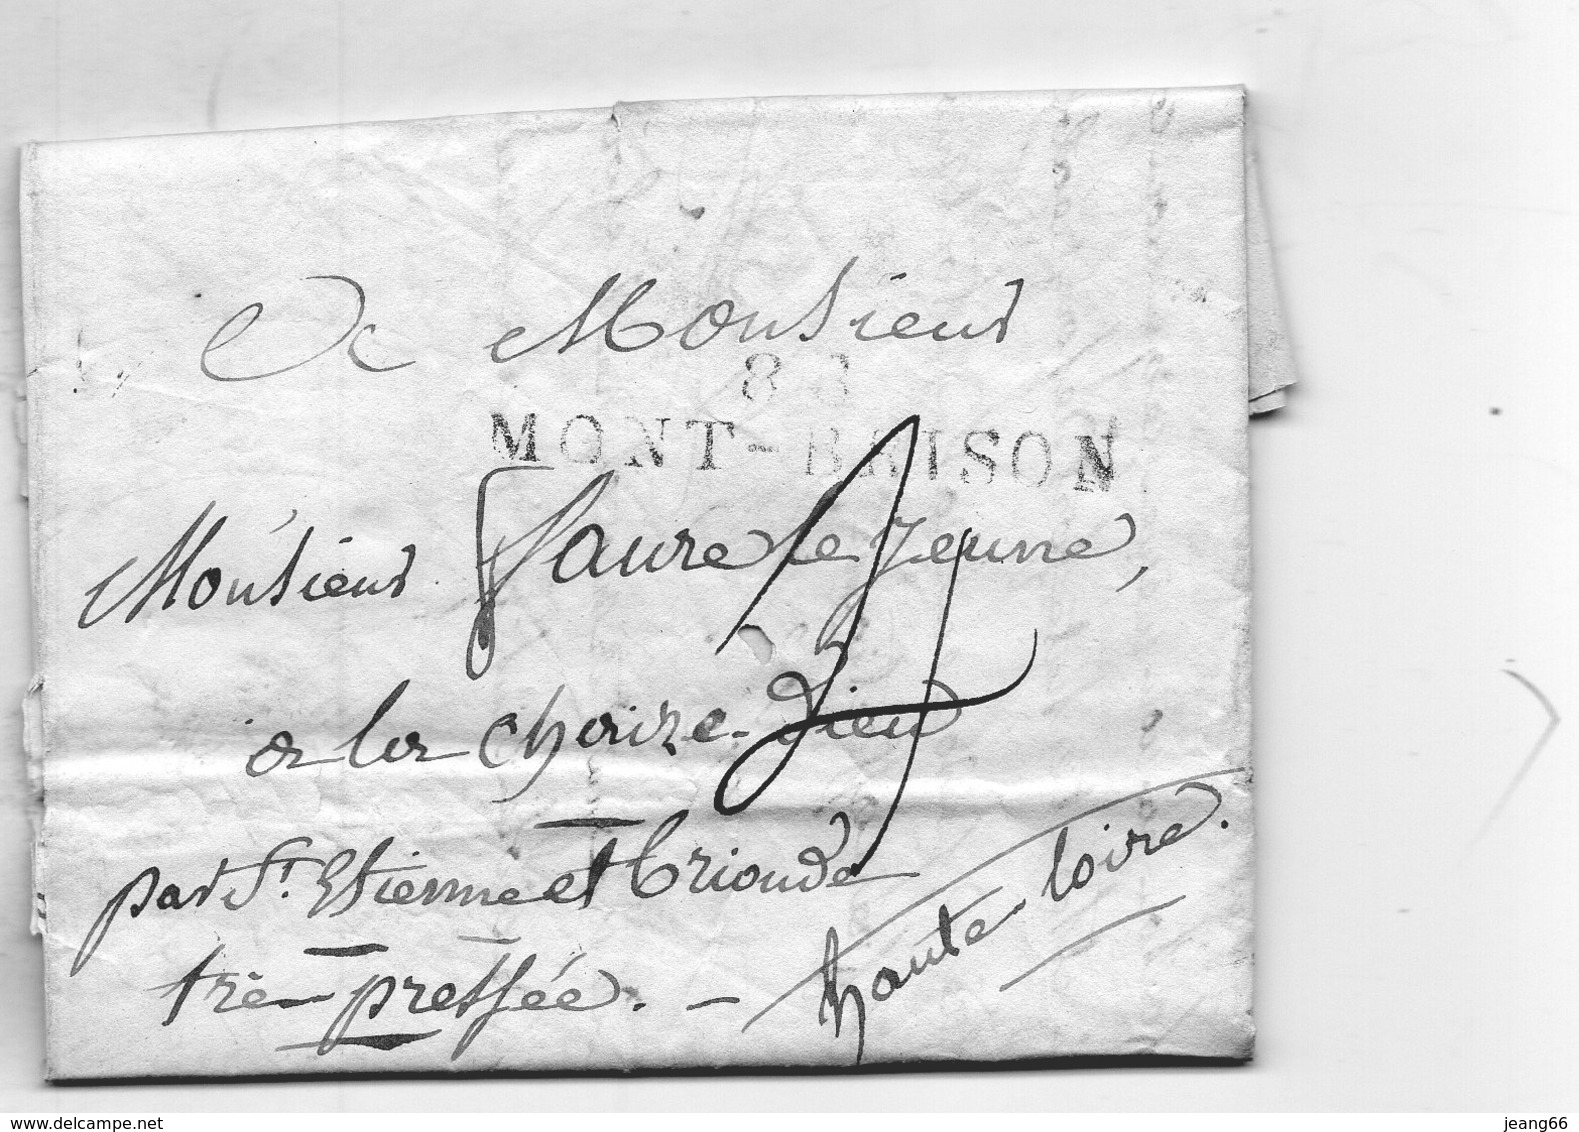 A Monsieur
88
MONT-BRISON
Monsieur faure le jeune,
a la chaize-dieu
par St. Etienne et brioude
trè pressée. -
haute-loire.
www.delcampe.net
jeang66